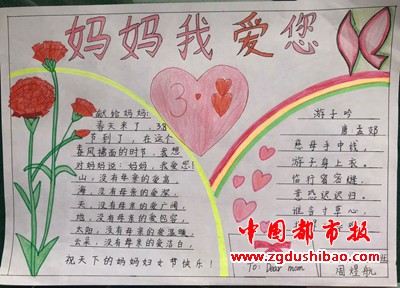 妈妈我爱您
3
献给妈妈:
春天来了,3.8
节到了,在这个
春风拂面的时节,我想
对妈妈说:妈妈,我爱您!
山,没有母亲的爱高
海,没有母亲的爱深
天,没有母亲的爱广阔
地,没有母亲的爱包容
太阳,没有母亲的爱温暖
云朵,没有母亲的爱洁白,
祝天下的妈妈妇女节快乐!
游子吟
唐:孟郊
慈母手中线,
游子身上衣。
临行密密缝,
意恐迟迟归。
谁言寸草心,
中国都市报
www.zgdushibao.com
To: Dear mom
周煜航